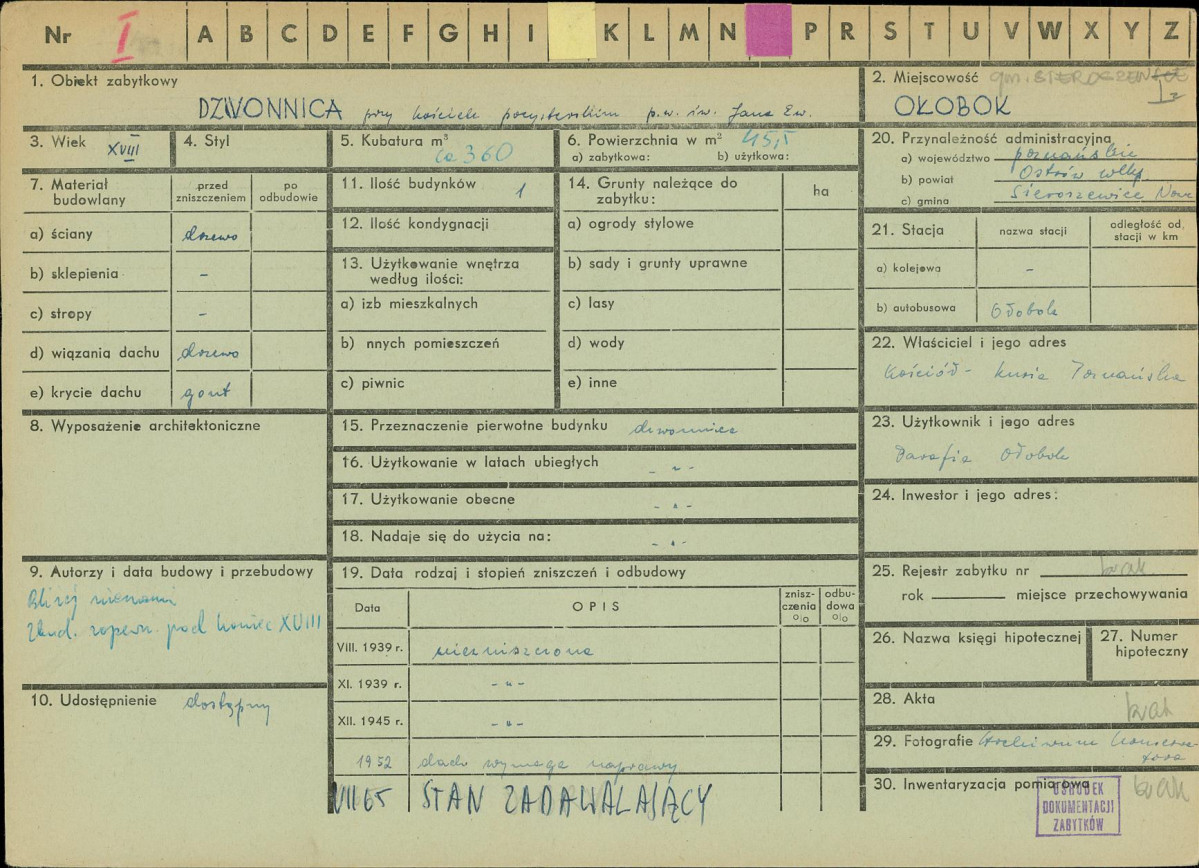 Nr I A B C D E F G H I K L M N P R S T U V W X Y Z
1. Obiekt zabytkowy
DZWONNICA przy kościele pocysterskim p.w. św. Jana Ew.
2. Miejscowość gm. SIEROSZEWICE
OŁOBOK
3. Wiek XVIII
4. Styl
5. Kubatura m³
ca 360
6. Powierzchnia w m² 45,5
a) zabytkowa: b) użytkowa:
7. Materiał budowlany
przed zniszczeniem
po odbudowie
a) ściany drzewo
b) sklepienia –
c) stropy –
d) wiązania dachu drzewo
e) krycie dachu gont
8. Wyposażenie architektoniczne
9. Autorzy i data budowy i przebudowy
Bliżej nieznani
Zbud. zapewn. pod koniec XVIII
10. Udostępnienie dostępny
11. Ilość budynków 1
12. Ilość kondygnacji
13. Użytkowanie wnętrza
według ilości:
a) izb mieszkalnych
b) nnych pomieszczeń
c) piwnic
14. Grunty należące do
zabytku:
ha
a) ogrody stylowe
b) sady i grunty uprawne
c) lasy
d) wody
e) inne
15. Przeznaczenie pierwotne budynku dzwonnica
16. Użytkowanie w latach ubiegłych - " -
17. Użytkowanie obecne - " -
18. Nadaje się do użycia na: - " -
19. Data rodzaj i stopień zniszczeń i odbudowy
Data
OPIS
znisz-
czenia
%
odbu-
dowa
%
VIII. 1939 r. niezniszczona
XI. 1939 r. - " -
XII. 1945 r. - " -
1952 dach wymaga naprawy
VII 65 STAN ZADAWALAJĄCY
20. Przynależność administracyjna
a) województwo poznańskie
b) powiat Ostrów wlkp.
c) gmina Sieroszewice Nowe
21. Stacja
nazwa stacji
odległość od
stacji w km
a) kolejowa –
b) autobusowa Ołobok
22. Właściciel i jego adres
Kościół - kuria Poznańska
23. Użytkownik i jego adres
Parafia Ołobok
24. Inwestor i jego adres:
25. Rejestr zabytku nr brak
rok miejsce przechowywania
26. Nazwa księgi hipotecznej
27. Numer
hipoteczny
28. Akta brak
29. Fotografie Archiwum Konserwa-
tora
30. Inwentaryzacja pomiarowa brak
OŚRODEK
DOKUMENTACJI
ZABYTKÓW